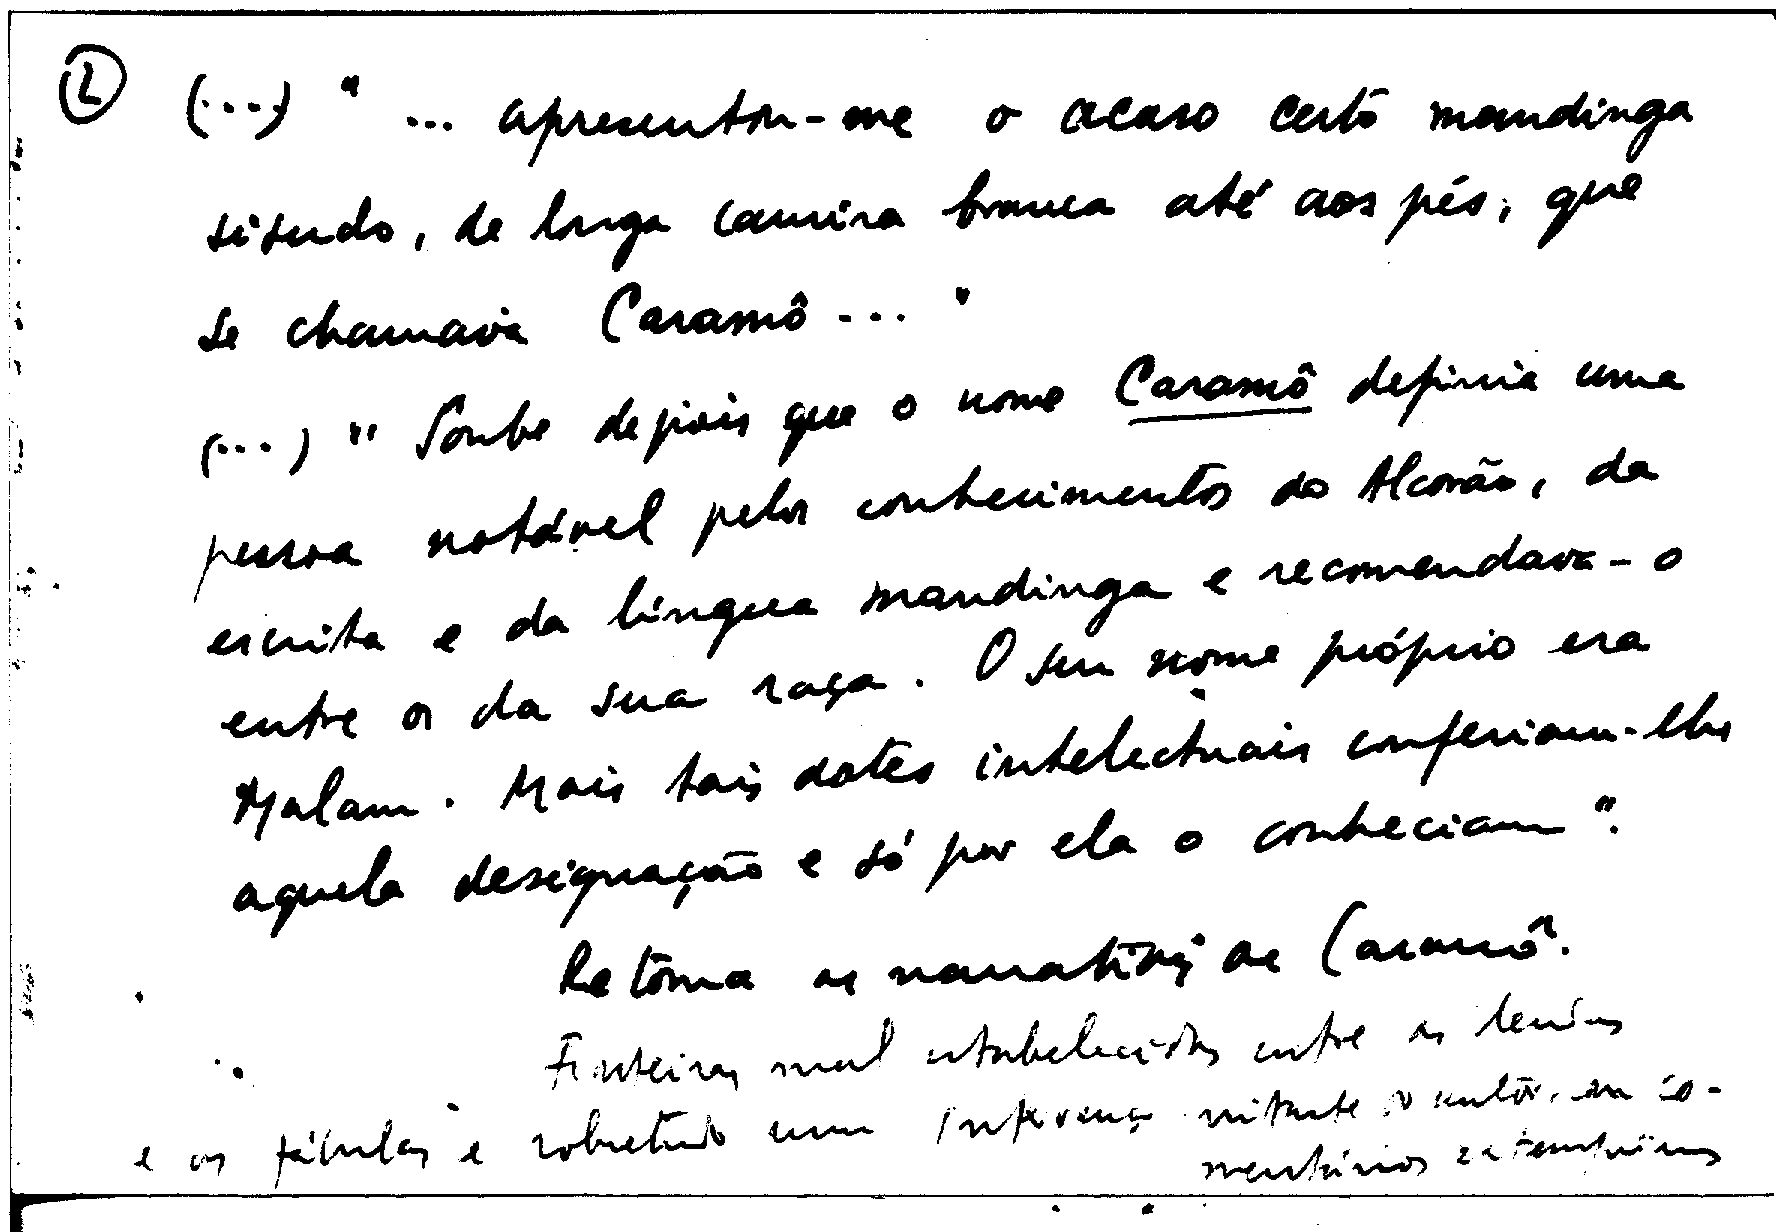 2
(...) " ... apresentou-me o acaso certo mandinga
sisudo, de longa camisa branca até aos pés, que
se chamava Caramô ... "
(...) " Soube depois que o nome Caramô definia uma
pessoa notável pelos conhecimentos do Alcorão, da
escrita e da língua mandinga e recomendava-o
entre os da sua raça. O seu nome próprio era
Malam. Mais tais dotes intelectuais conferiam-lhe
aquela designação e só por ela o conheciam".
Retoma as narrativas de Caramô.
Fronteiras mal estabelecidas entre as lendas
e as fábulas e sobretudo uma presença do autor, em co-
mentários extemporâneos